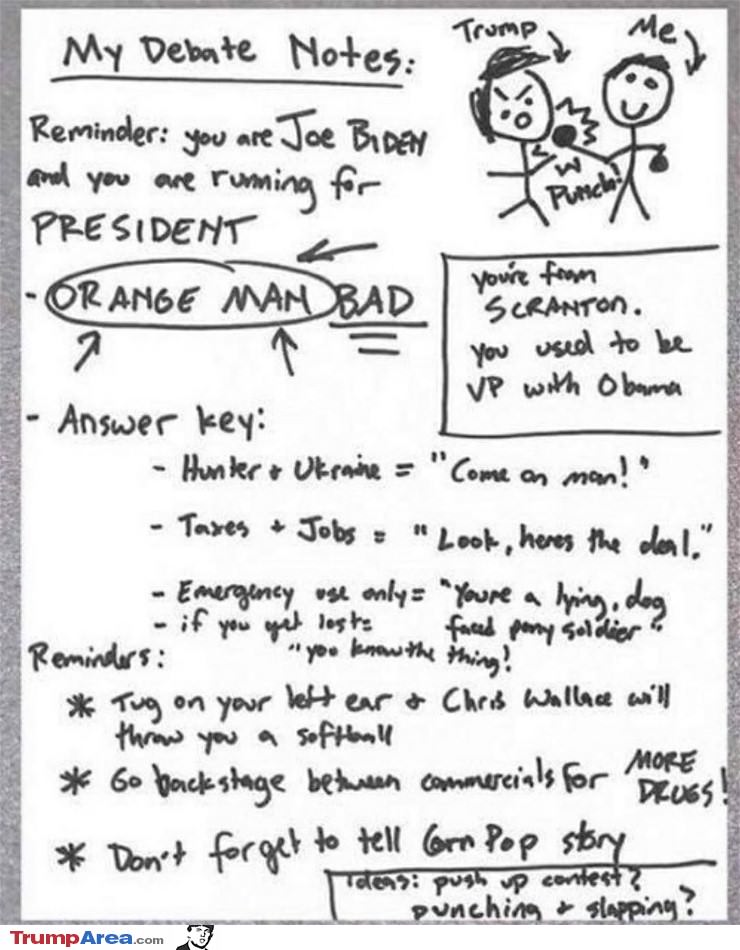 My Debate Notes:
Trump
Me
Punch!
Reminder: you are Joe BIDEN
and you are running for
PRESIDENT
- ORANGE MAN BAD
you're from
SCRANTON.
you used to be
VP with Obama
- Answer key:
- Hunter + Ukraine = "Come on man!"
- Taxes + Jobs = "Look, heres the deal."
- Emergency use only = "Youre a lying, dog
faced pony soldier"
- if you get lost =
"you know the thing!
Reminders:
* Tug on your left ear + Chris Wallace will
throw you a softball
* Go backstage between commercials for MORE
DRUGS!
* Don't forget to tell Corn Pop story
ideas: push up contest?
punching + slapping?
TrumpArea.com